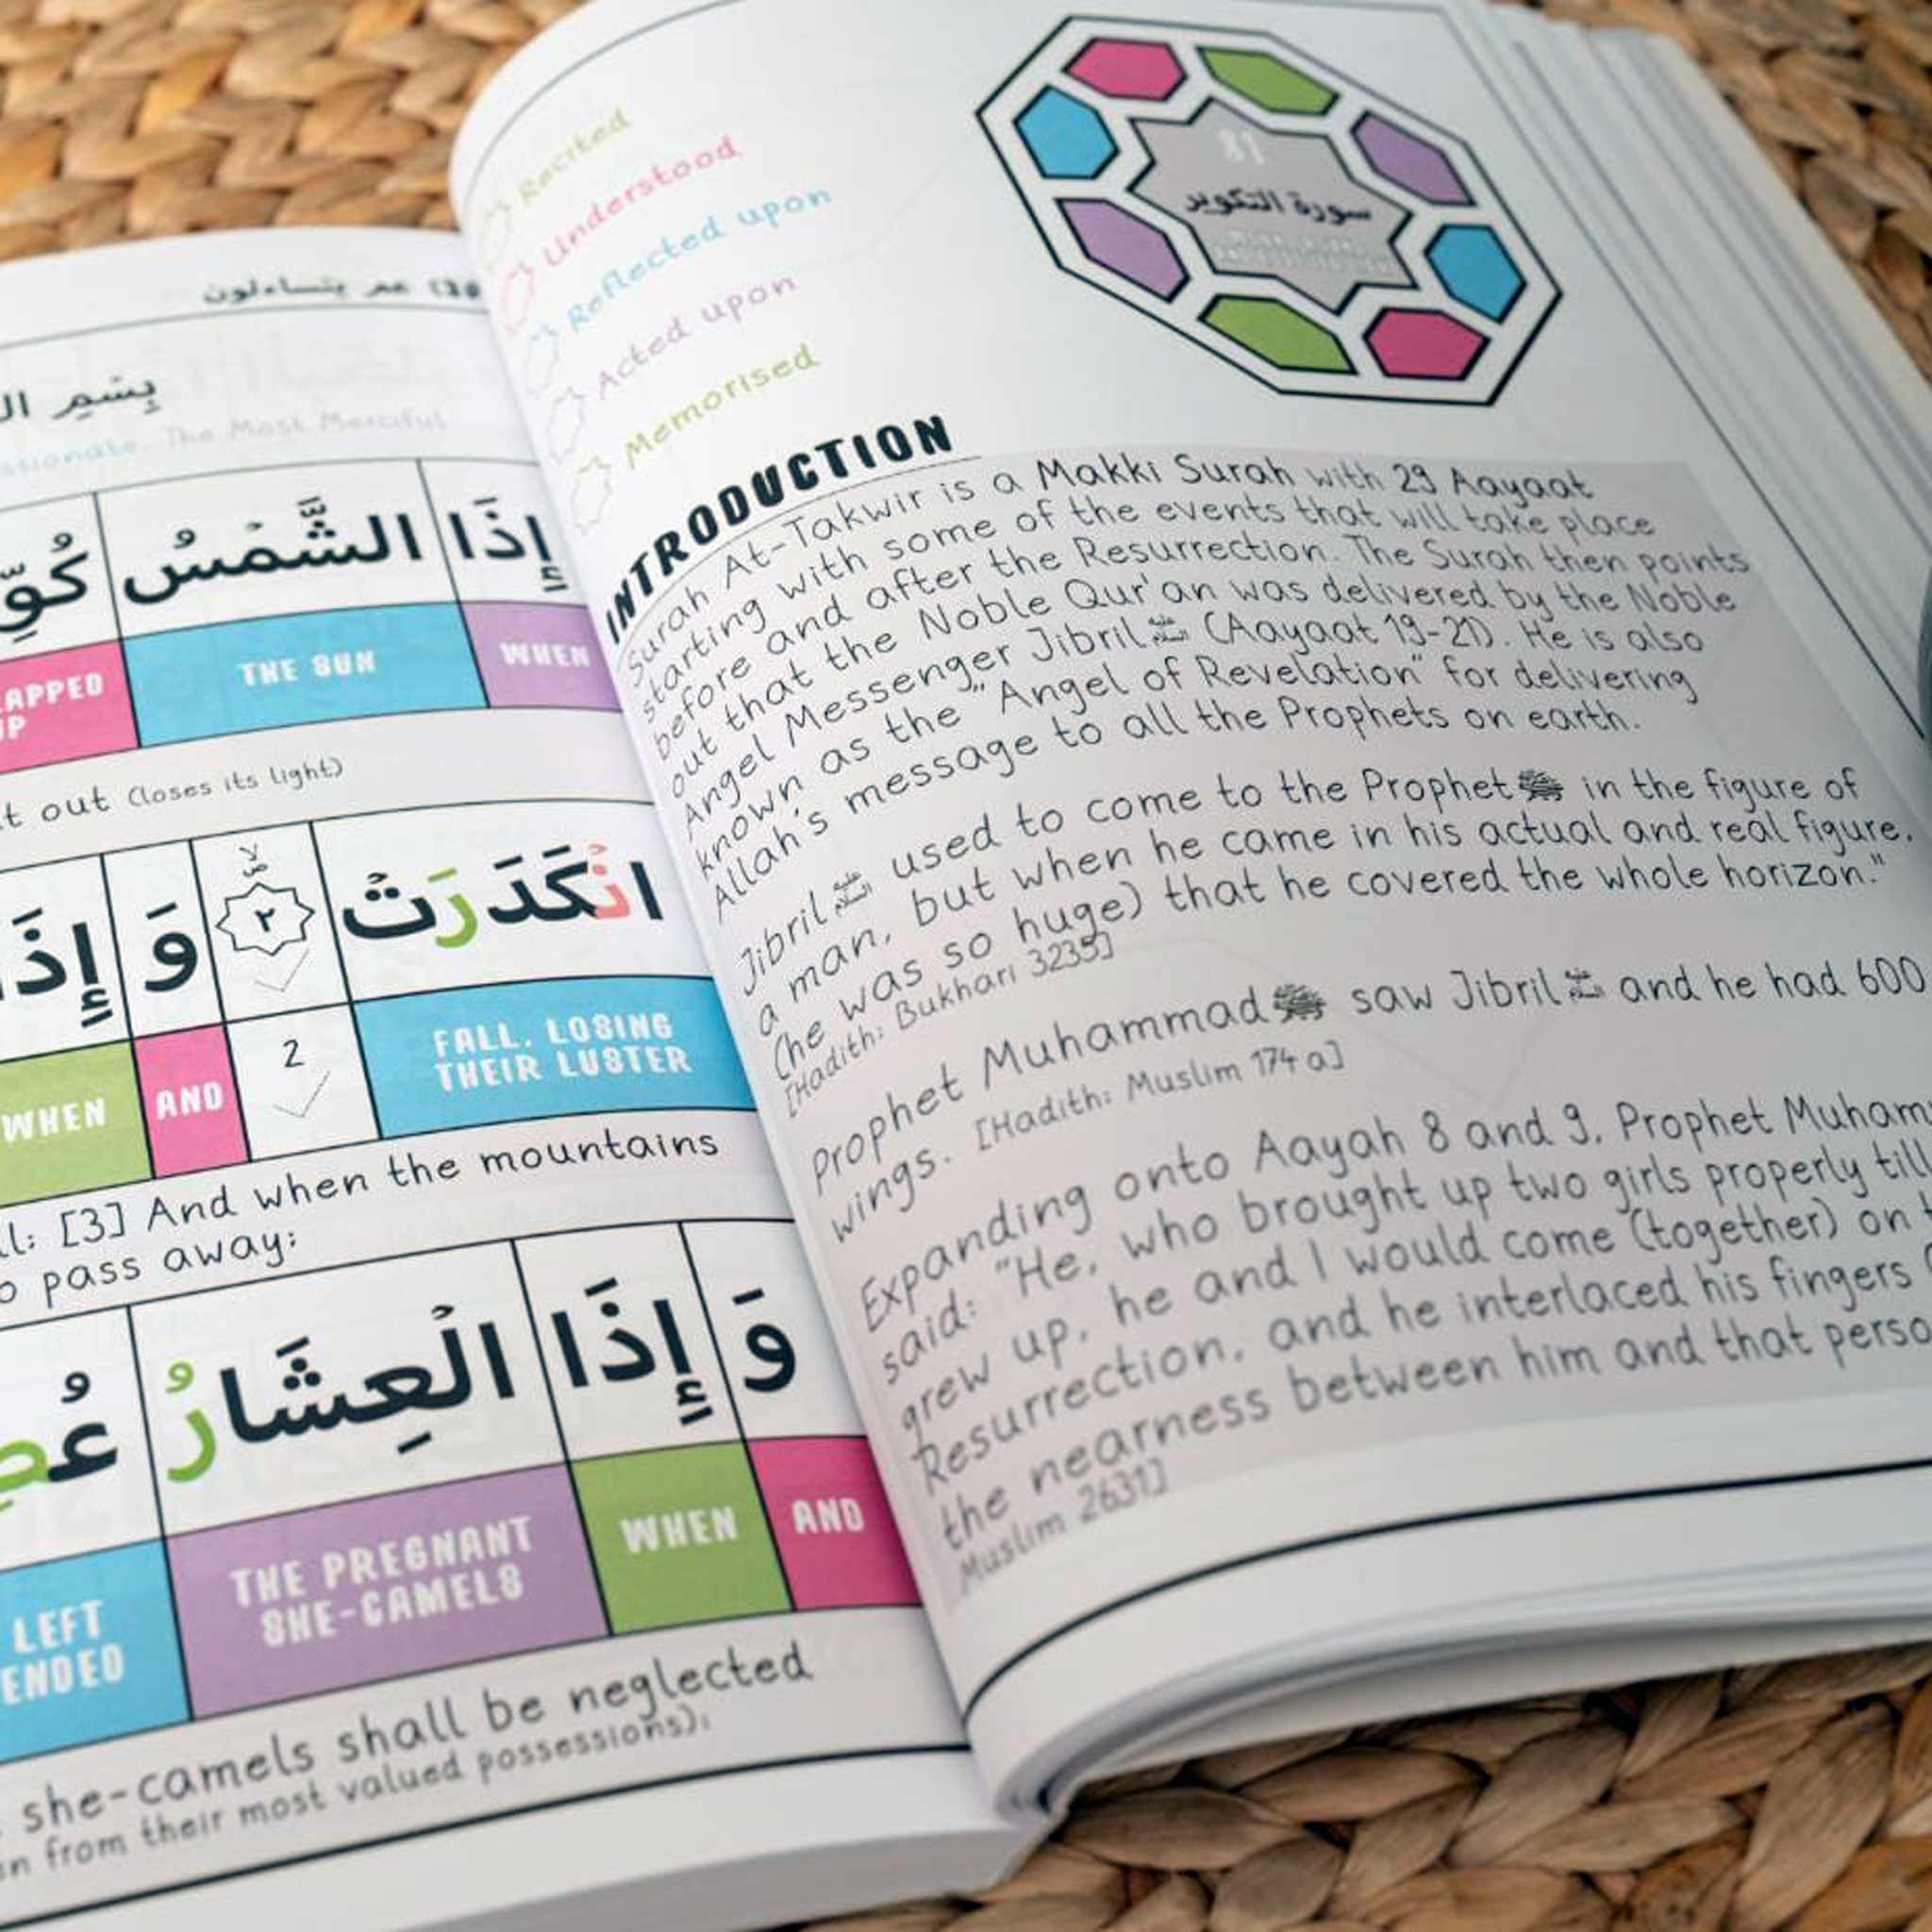 عم يتساءلون
بِسْمِ
The Most Merciful
إِذَا الشَّمْسُ
WHEN THE SUN
UP
out (loses its light)
انْكَدَرَتْ ٢ وَ إِذَا
FALL, LOSING THEIR LUSTER 2 AND WHEN
[3] And when the mountains
pass away:
وَ إِذَا الْعِشَارُ
AND WHEN THE PREGNANT SHE-CAMELS LEFT
she-camels shall be neglected
from their most valued possessions);
Recited
Understood
Reflected upon
Acted upon
Memorised
81
سورة التكوير
INTRODUCTION
Surah At-Takwir is a Makki Surah with 29 Aayaat
starting with some of the events that will take place
before and after the Resurrection. The Surah then points
out that the Noble Qur'an was delivered by the Noble
Angel Messenger Jibril عليه السلام (Aayaat 19-21). He is also
known as the "Angel of Revelation" for delivering
Allah's message to all the Prophets on earth.
Jibril عليه السلام used to come to the Prophet ﷺ in the figure of
a man, but when he came in his actual and real figure,
(he was so huge) that he covered the whole horizon."
[Hadith: Bukhari 3235]
Prophet Muhammad ﷺ saw Jibril عليه السلام and he had 600
wings. [Hadith: Muslim 174 a]
Expanding onto Aayah 8 and 9, Prophet
said: "He, who brought up two girls properly till
grew up, he and I would come (together) on
Resurrection, and he interlaced his fingers
the nearness between him and that
Muslim 2631]